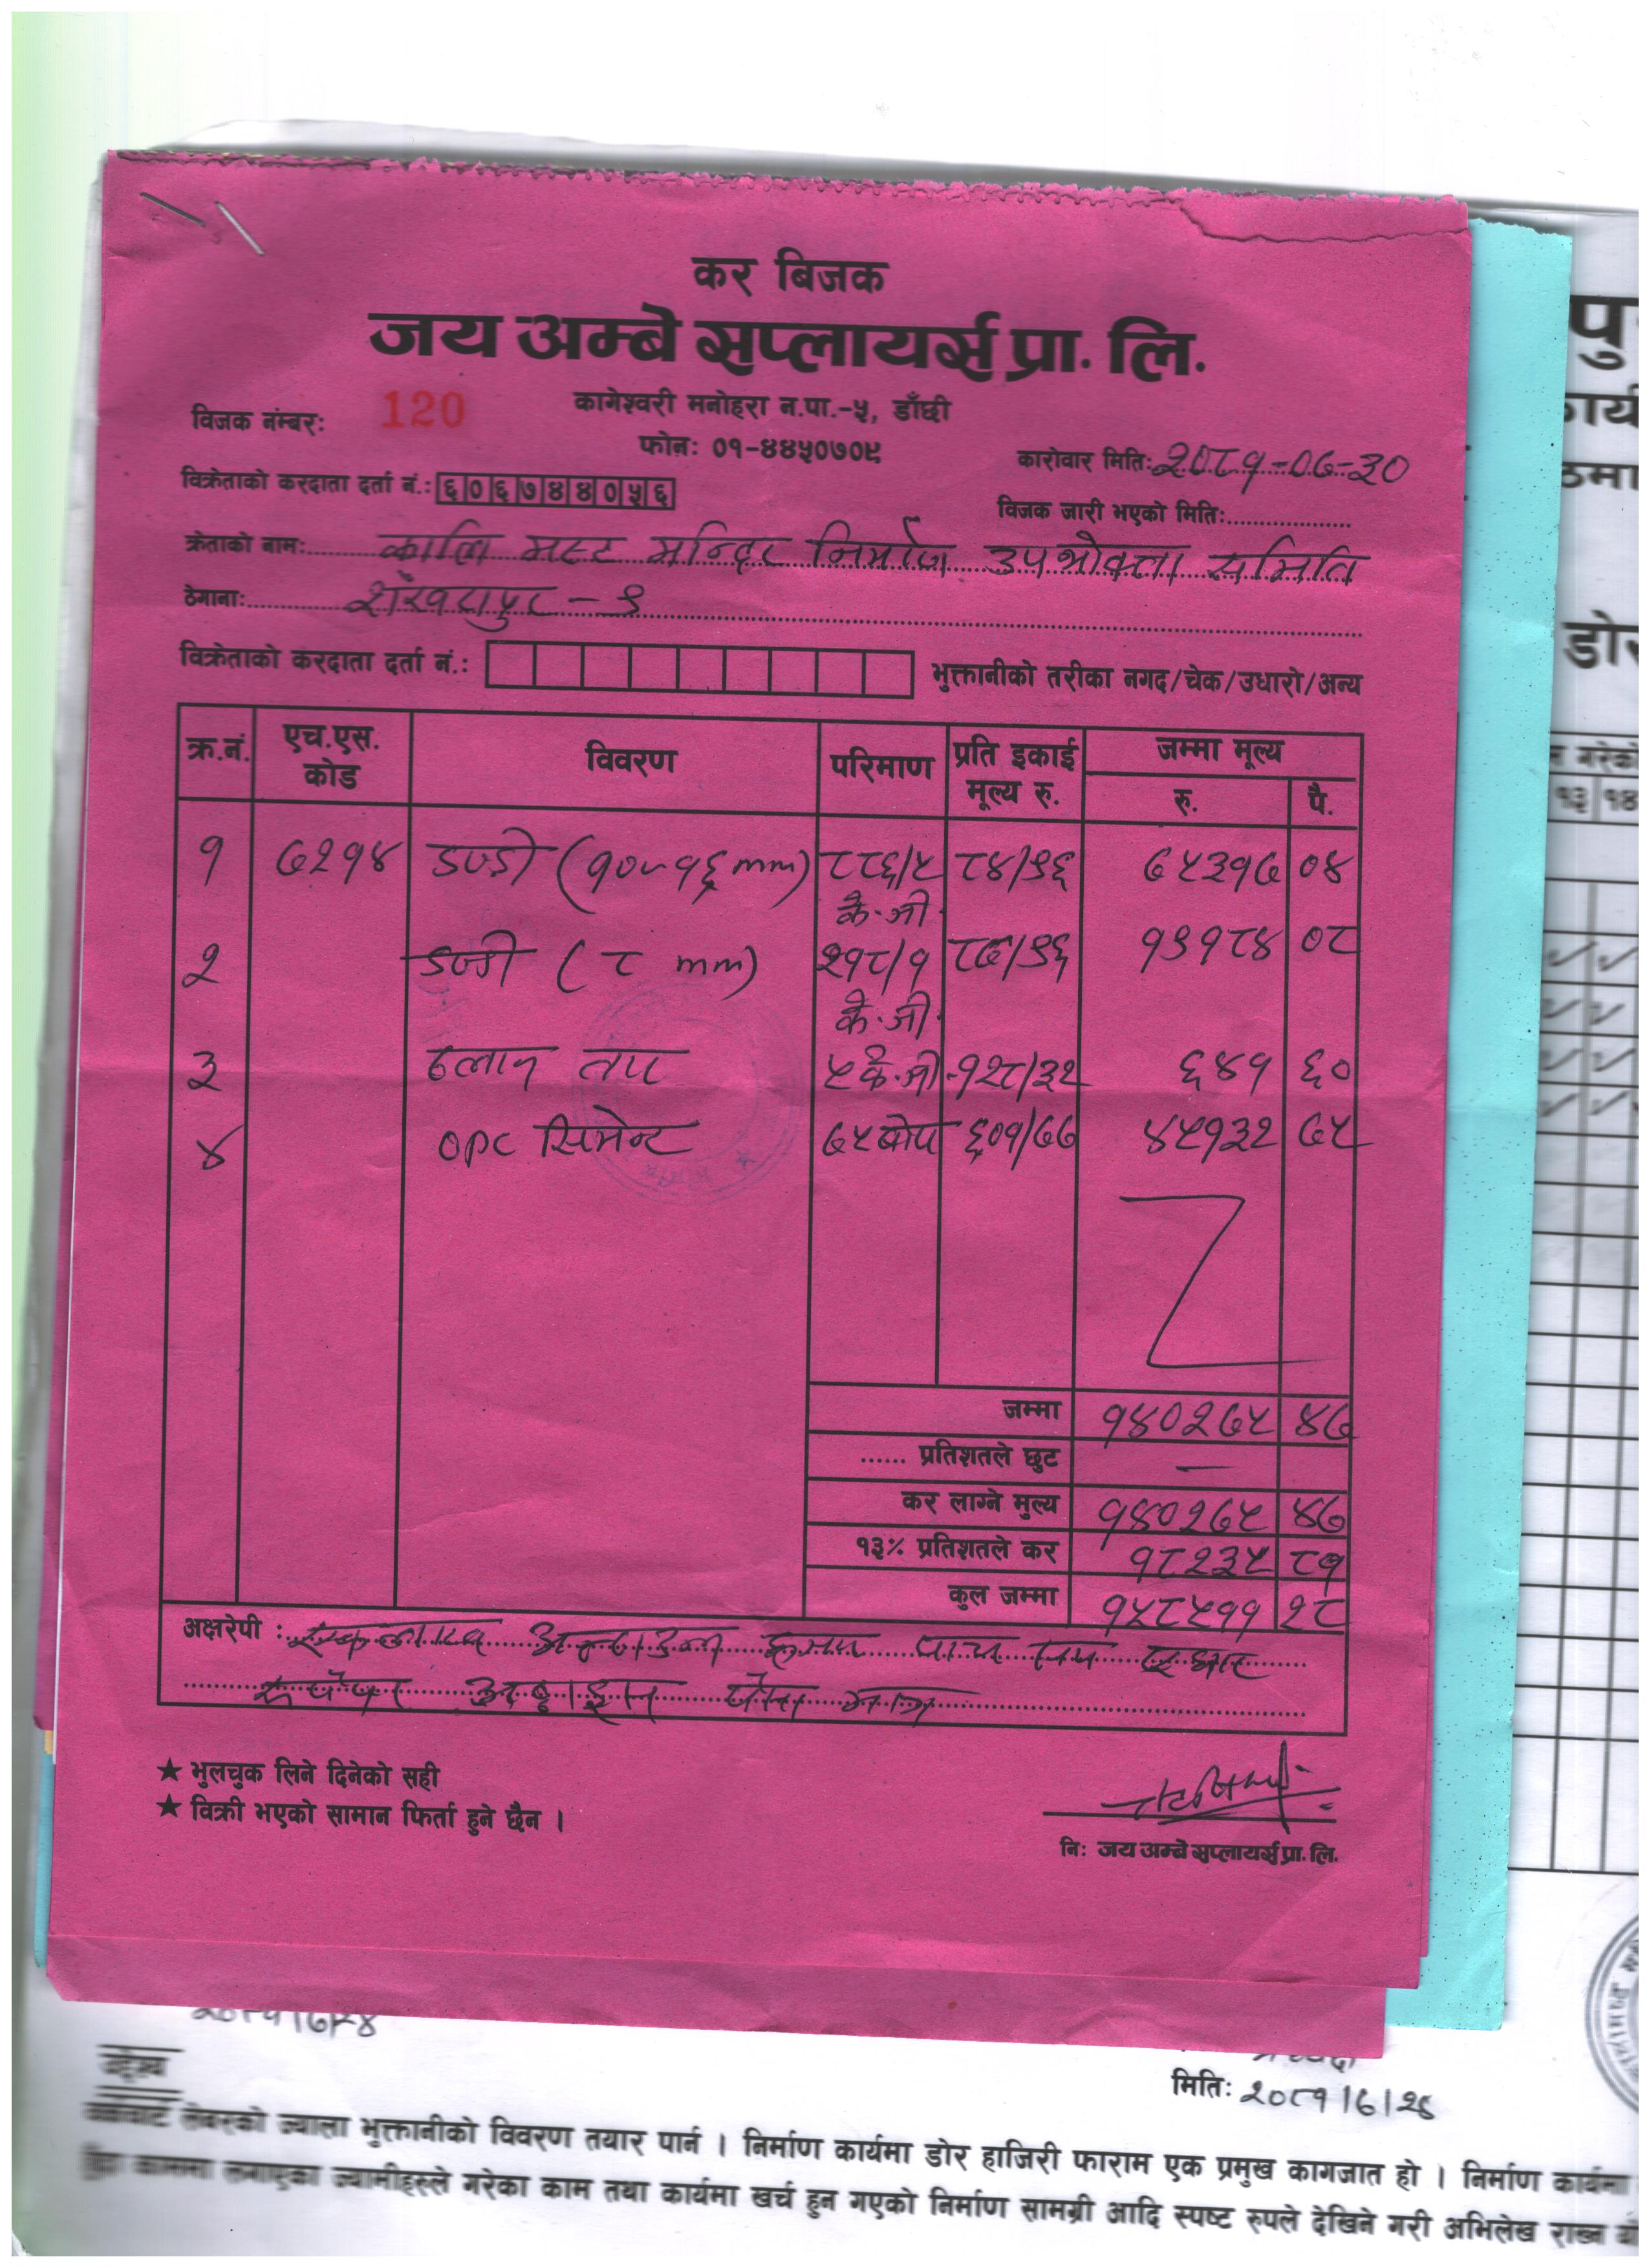 कर बिजक
जय अम्बे सप्लायर्स प्रा. लि.
कागेश्वरी मनोहरा न.पा.-५, डाँछी
विजक नंम्बर: 120
फोन: ०१-४४५०७०९
कारोवार मिति: २०८१-०७-३०
विक्रेताको करदाता दर्ता नं.: ६०६७४४०५६
विजक जारी भएको मिति:
क्रेताको नाम: कालि मष्ट मन्दिर निर्माण उपभोक्ता समिति
ठेगाना: शंखरापुर - ९
विक्रेताको करदाता दर्ता नं.:
भुक्तानीको तरीका नगद/चेक/उधारो/अन्य
क्र.नं. एच.एस. कोड विवरण परिमाण प्रति इकाई मूल्य रु. जम्मा मूल्य
रु. पै.
१ ७२१४ डण्डी (१०-१६ mm) ८८६/५ ८४/९६ ७५३१७ ०४
के.जी.
२ डण्डी (८ mm) २१८/१ ८७/९६ १९१८४ ०८
के.जी.
३ ढलान तार ५ के.जी. १२८/३२ ६४१ ६०
४ OPC सिमेन्ट ७५ बोरा ६०१/७७ ४५१३२ ७५
जम्मा १४०२७५ ४७
...... प्रतिशतले छुट —
कर लाग्ने मुल्य १४०२७५ ४७
१३% प्रतिशतले कर १८२३५ ८१
कुल जम्मा १५८५११ २८
अक्षरेपी : एक लाख अन्ठाउन्न हजार पाँच सय एघार
रुपैयाँ अठ्ठाइस पैसा मात्र
★ भुलचुक लिने दिनेको सही
★ विक्री भएको सामान फिर्ता हुने छैन ।
नि: जय अम्बे सप्लायर्स प्रा. लि.
मिति: २०८१।७।२८
लेबरको ज्याला भुक्तानीको विवरण तयार पार्न । निर्माण कार्यमा डोर हाजिरी फाराम एक प्रमुख कागजात हो । निर्माण कार्यमा
काममा लगाएका ज्यामीहरुले गरेका काम तथा कार्यमा खर्च हुन गएको निर्माण सामग्री आदि स्पष्ट रुपले देखिने गरी अभिलेख राख्न